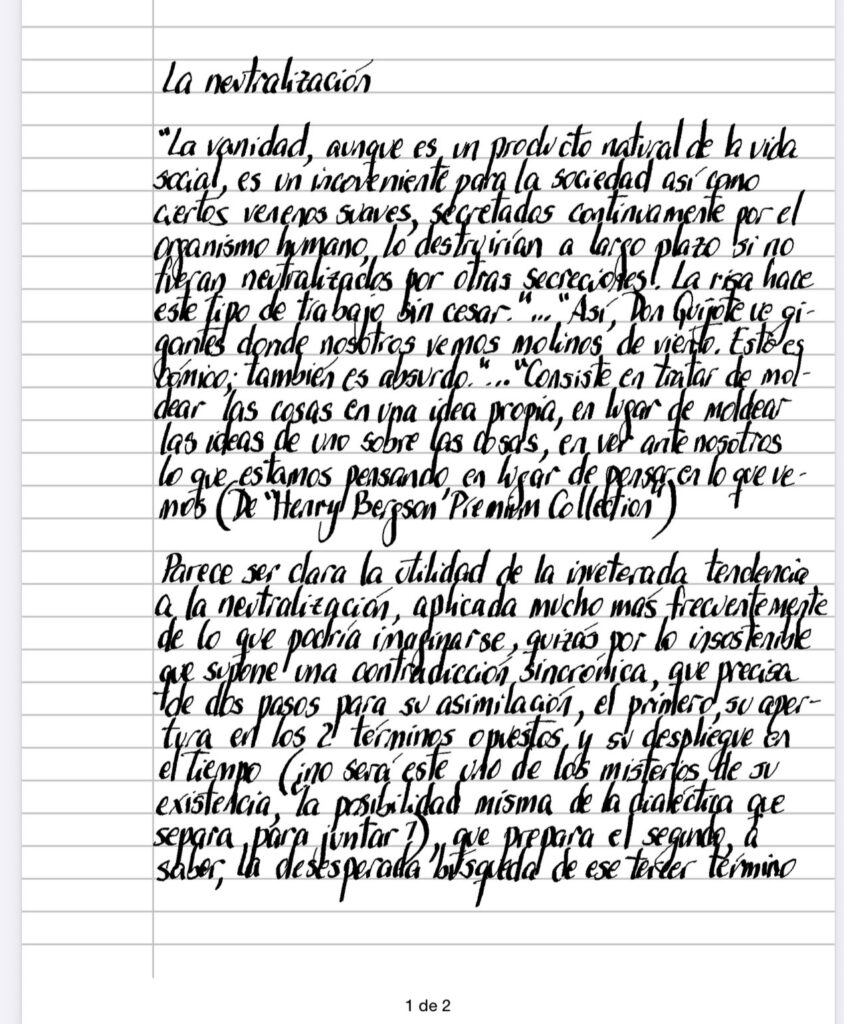 La neutralización
"La vanidad, aunque es un producto natural de la vida
social, es un incoveniente para la sociedad así como
ciertos venenos suaves, secretados continuamente por el
organismo humano, lo destruirían a largo plazo si no
fueran neutralizados por otras secreciones!. La risa hace
este tipo de trabajo sin cesar."..."Así, Don Quijote ve gi-
gantes donde nosotros vemos molinos de viento. Esto es
cómico; también es absurdo."..."Consiste en tratar de mol-
dear las cosas en una idea propia, en lugar de moldear
las ideas de uno sobre las cosas, en ver ante nosotros
lo que estamos pensando en lugar de pensar en lo que ve-
mos (De "Henry Bergson Premium Collection")
Parece ser clara la utilidad de la inveterada tendencia
a la neutralización, aplicada mucho más frecuentemente
de lo que podría imaginarse, quizás por lo insostenible
que supone una contradicción sincrónica, que precisa
de dos pasos para su asimilación, el primero, su aper-
tura en los 2 términos opuestos y su despliegue en
el tiempo (¿no será este uno de los misterios de su
existencia, la posibilidad misma de la dialéctica que
separa para juntar?), que prepara el segundo, a
saber, la desesperada búsqueda de ese tercer término
1 de 2